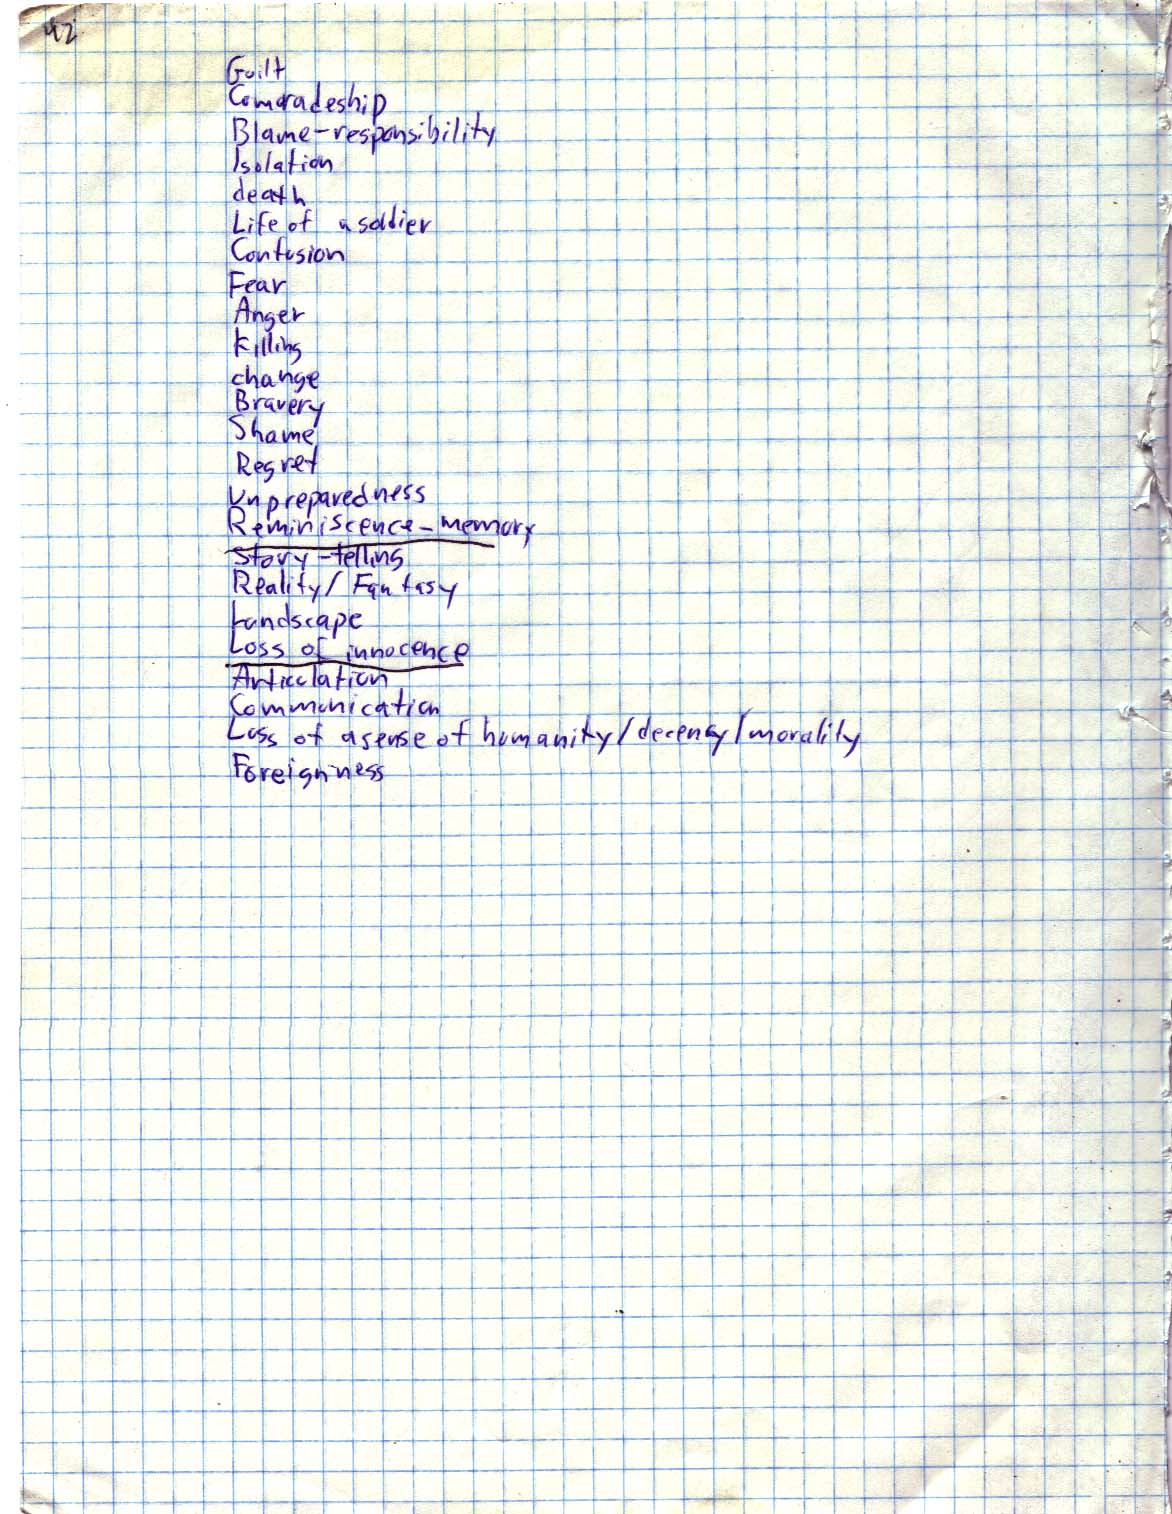 42
Guilt
Comoradeship
Blame-responsibility
Isolation
death
Life of a soldier
Confusion
Fear
Anger
Killing
change
Bravery
Shame
Regret
Unpreparedness
Reminiscence-memory
Story-telling
Reality/Fantasy
Landscape
Loss of innocence
Articulation
Communication
Loss of a sense of humanity/decency/morality
Foreignness